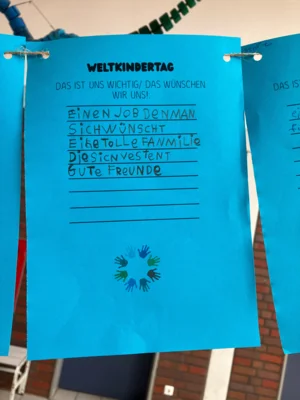 WELTKINDERTAG
DAS IST UNS WICHTIG/ DAS WÜNSCHEN
WIR UNS!
EINEN JOB DEN MAN
SICH WÜNSCHT
EINE TOLLE FANMILIE
DIE SICH VESTENT
GUTE FREUNDE
DAS IST